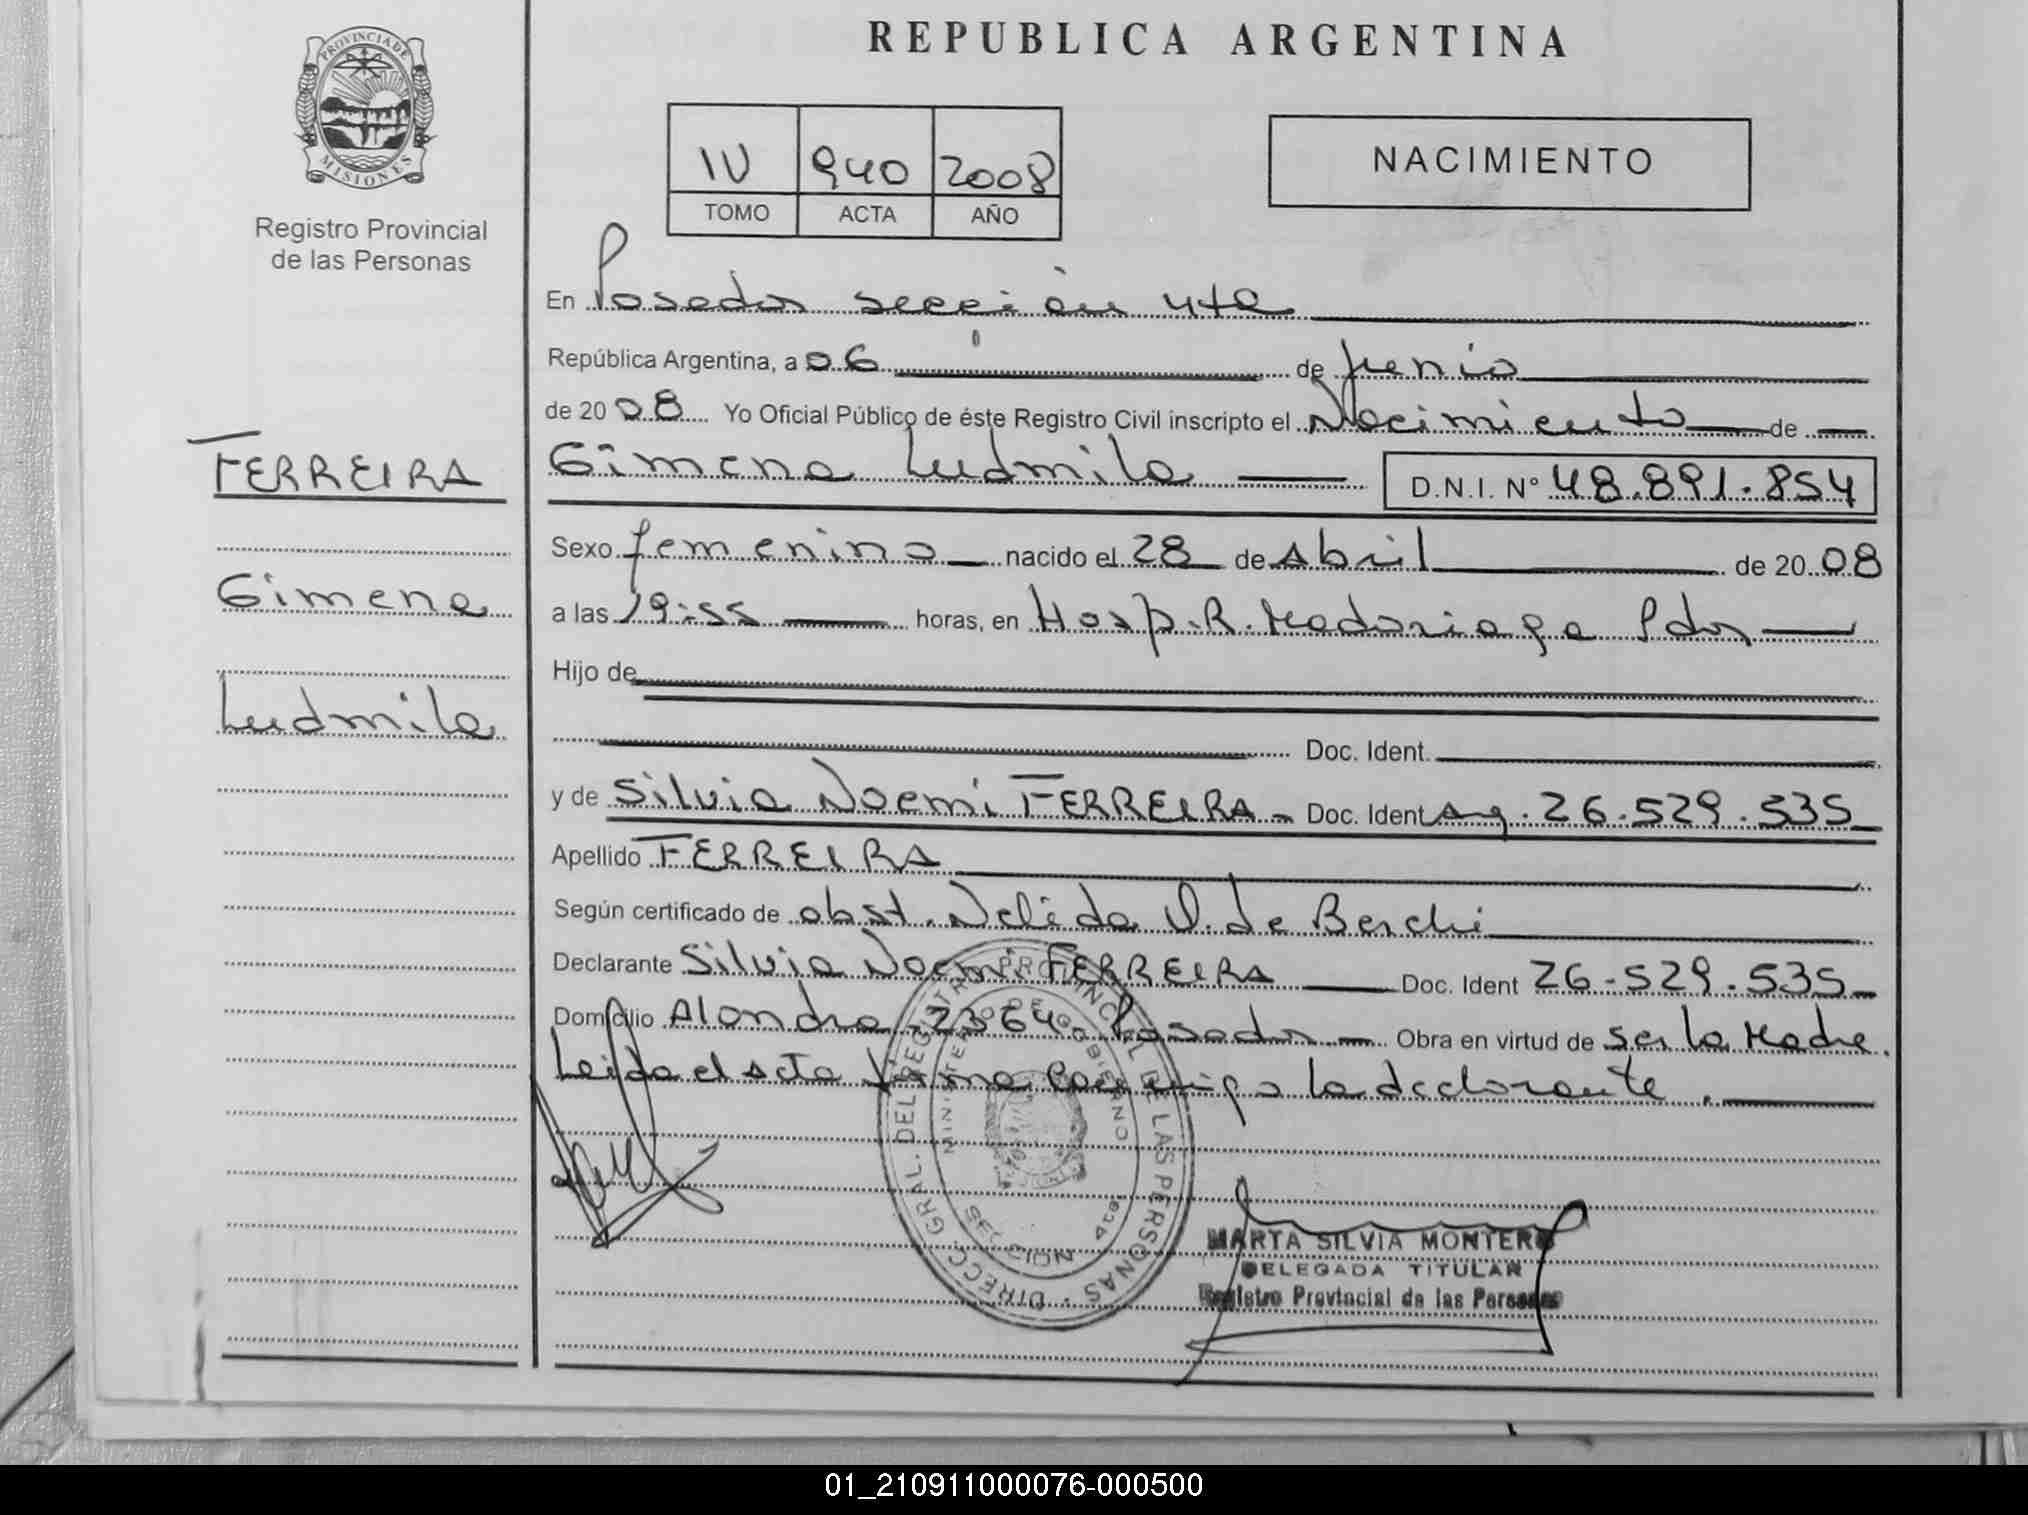 REPUBLICA ARGENTINA
PROVINCIA DE
MISIONES
Registro Provincial
de las Personas
IV 940 2008
TOMO ACTA AÑO
NACIMIENTO
FERREIRA
Gimena
Ludmila
En Posadas sección 4ta
República Argentina, a 06 de junio
de 2008 Yo Oficial Público de éste Registro Civil inscripto el Nacimiento de
Gimena Ludmila D.N.I. Nº 48.891.854
Sexo femenino nacido el 28 de Abril de 2008
a las 19:55 horas, en Hosp. R. Madariaga Pdas
Hijo de
Doc. Ident.
y de Silvia Noemi FERREIRA Doc. Ident Arg. 26.529.535
Apellido FERREIRA
Según certificado de obst. Nelida V. de Berchi
Declarante Silvia Noemi FERREIRA Doc. Ident 26.529.535
Domicilio Alondra 2364 Posadas Obra en virtud de ser la Madre.
Leida el acta firma conmigo la declarante.
DIRECC. GRAL. DEL REGISTRO PROVINCIAL DE LAS PERSONAS
MINISTERIO DE GOBIERNO
SECCION 4ta
MARTA SILVIA MONTERO
DELEGADA TITULAR
Registro Provincial de las Personas
01_210911000076-000500